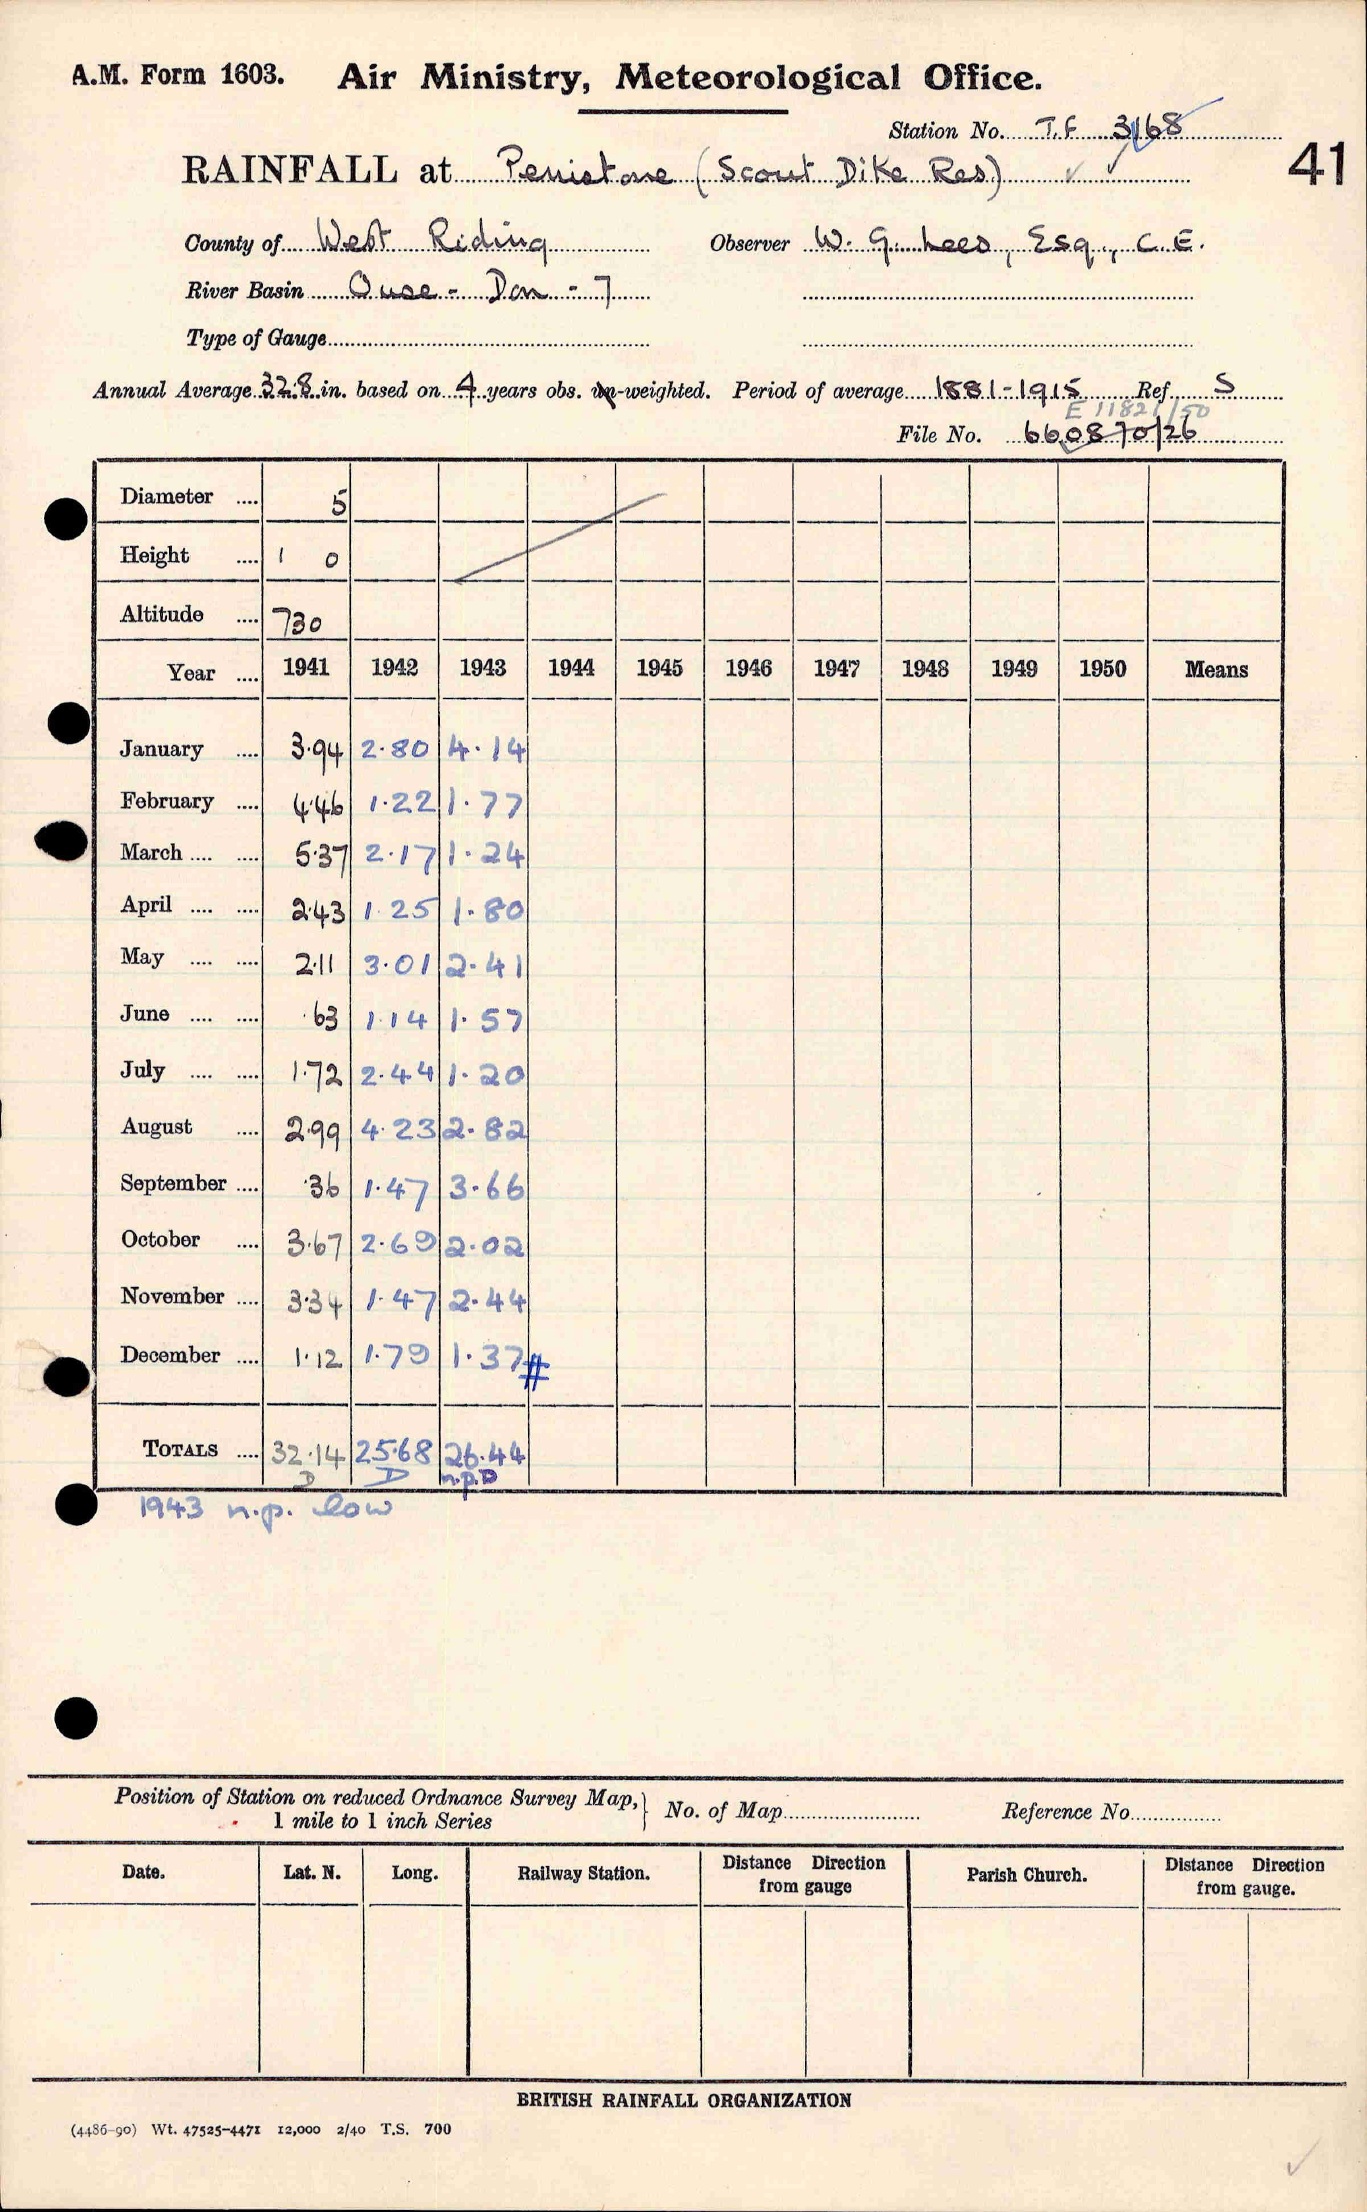 A.M. Form 1603. Air Ministry, Meteorological Office.
Station No. T.F 3168
41
RAINFALL at Penistone (Scout Dike Res)
County of West Riding Observer W. G. Lees, Esq., C.E.
River Basin Ouse - Don - 7
Type of Gauge
Annual Average 32.8 in. based on 4 years obs. un-weighted. Period of average 1881-1915 Ref. S
E 11821/50
File No. 660870/26
Diameter .... 5
Height .... 1 0
Altitude .... 730
Year .... 1941 1942 1943 1944 1945 1946 1947 1948 1949 1950 Means
January .... 3.94 2.80 4.14
February .... 4.46 1.22 1.77
March .... .... 5.37 2.17 1.24
April .... .... 2.43 1.25 1.80
May .... .... 2.11 3.01 2.41
June .... .... .63 1.14 1.57
July .... .... 1.72 2.44 1.20
August .... 2.99 4.23 2.82
September .... .36 1.47 3.66
October .... 3.67 2.69 2.02
November .... 3.34 1.47 2.44
December .... 1.12 1.79 1.37 #
TOTALS .... 32.14 25.68 26.44
D D n.p.D
1943 n.p. low
Position of Station on reduced Ordnance Survey Map, 1 mile to 1 inch Series } No. of Map Reference No.
Date. Lat. N. Long. Railway Station. Distance Direction from gauge Parish Church. Distance Direction from gauge.
BRITISH RAINFALL ORGANIZATION
(4486-90) Wt. 47525-4471 12,000 2/40 T.S. 700